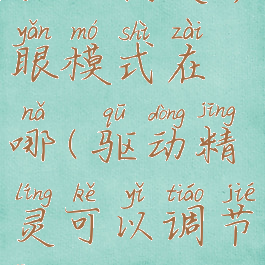 yǎn mó shì zài
眼模式在
nǎ qū dòng jīng
哪（驱动精
líng kě yǐ tiáo jié
灵可以调节